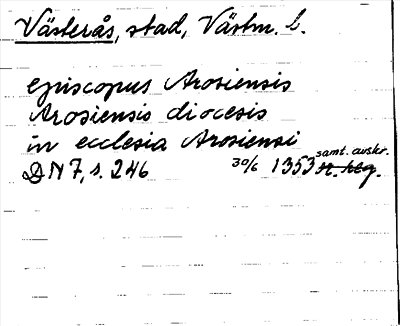 Västerås, stad, Västm. l.
episcopus Arosiensis
Arosiensis diocesis
in ecclesia Arosiensi
DN 7, s. 246 30/6 1353 samt. avskr.